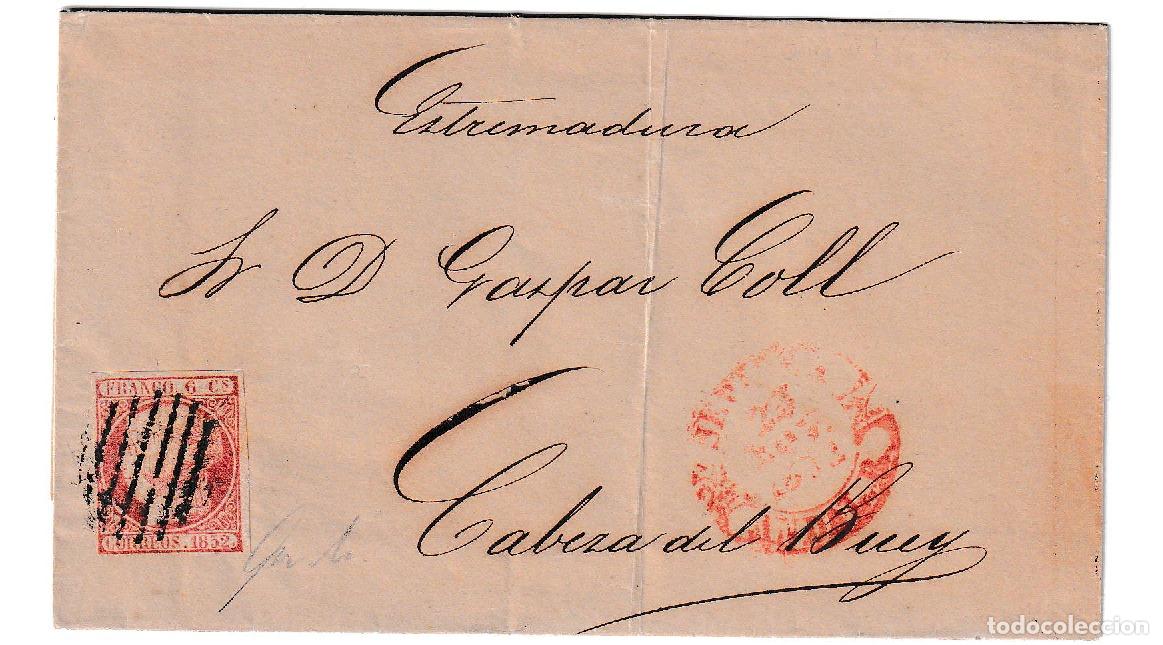 Estremadura
Sr D Gaspar Coll
FRANCO 6 CS
CORREOS. 1852
Cabeza del Buey
todocoleccion